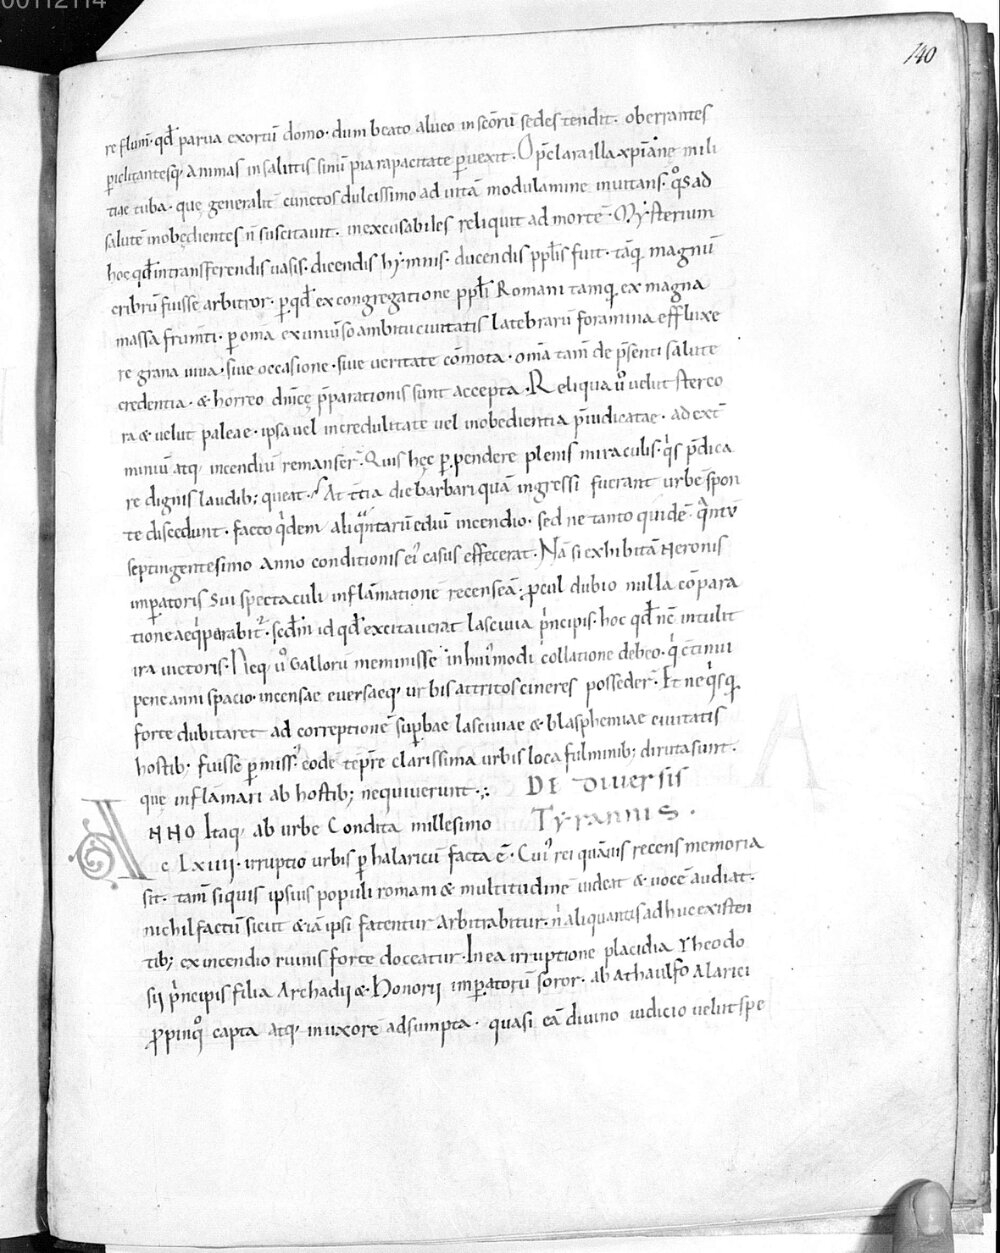 00112114
140
re flum̄· qđ parua exortū domo· dum beato alueo in sc̄orū sedes tendit· oberrantes
ꝑiclitantesq; animas in salutis sinū pia rapacitate ꝑuexit· O p̄clara illa xp̄ianę mili
tiae tuba· quę generalit̄ cunctos dulcissimo ad uitā modulamine inuitans· qͦs ad
salutē inobędientes n̄ suscitauit· inexcusabiles reliquit ad mortē· Mysterium
hoc qđ in transferendis uasis· dicendis hymnis· ducendis ppl̄is fuit· tāq̄ magnū
cribrū fuisse arbitror· ꝑ qđ ex congregatione ppl̄i Romani tamq̄ ex magna
massa frum̄ti· ꝑ om̄a ex uniuso ambitu ciuitatis latebrarū foramina effluxe
re grana uiua· siue occasione· siue ueritate cōmota· om̄a tam̄ de p̄senti salute
credentia· & horreo dn̄icę p̄parationis sunt accepta· Reliqua uͦ uelut sterco
ra & uelut paleae· ipsa uel incredulitate uel inobedientia p̄iudicatae· ad ext̄
miniū atq; incendiū remanser̄· Quis hęc ꝑpendere plenis miraculis· qͥs p̄dica
re dignis laudib; queat· At t̄tia die barbari quā ingressi fuerant urbē spon
te discedunt· facto qͥdem aliqͣntarū ediū incendio· sed ne tanto quidē· qͣntū
septingentesimo anno conditionis ei᾿ casus effecerat· Nā si exhibitā Neronis
imꝑatoris sui spectaculi inflāmatione recenseā· ꝓcul dubio nulla cōpara
tione aeqͥparabit᾿· scdm̄ id qđ excitauerat lasciuia pͥncipis· hoc qđ nc̄ intulit
ira uictoris· Neq; uͦ Gallorū meminisse in hui᾿modi collatione debeo· qͥ c̄tinui
pene anni spacio· incensae euersaeq; urbis attritos cineres posseder̄· Et ne qͥsq̄
forte dubitaret ad correptionē suꝑbae lasciuiae & blasphemiae ciuitatis
hostib; fuisse ꝑmiss᾿· eodē tep̄re clarissima urbis loca fulminib; diruta sunt·
quę inflāmari ab hostib; nequiuerunt·; DE Diuersis
ANNO Itaq; ab urbe Condita millesimo Tyrannis·
c Lxiiii· irruptio urbis ꝑ halaricū facta ē· Cui᾿ rei quāuis recens memoria
sit· tam̄ siquis ipsius populi romani & multitudinē uideat & uocē audiat·
nichil factū sicut & iā ipsi fatentur arbitrabitur· n̄ aliquantis adhuc existen
tib; ex incendio ruinis forte doceatur· In ea irruptione placidia Theodo
sii pͥncipis filia Archadij & Honorij imꝑatorū soror· ab athaulfo alarici
ꝓpinqͦ capta atq; in uxorē adsumpta· quasi eā diuino iudicio uelut spe